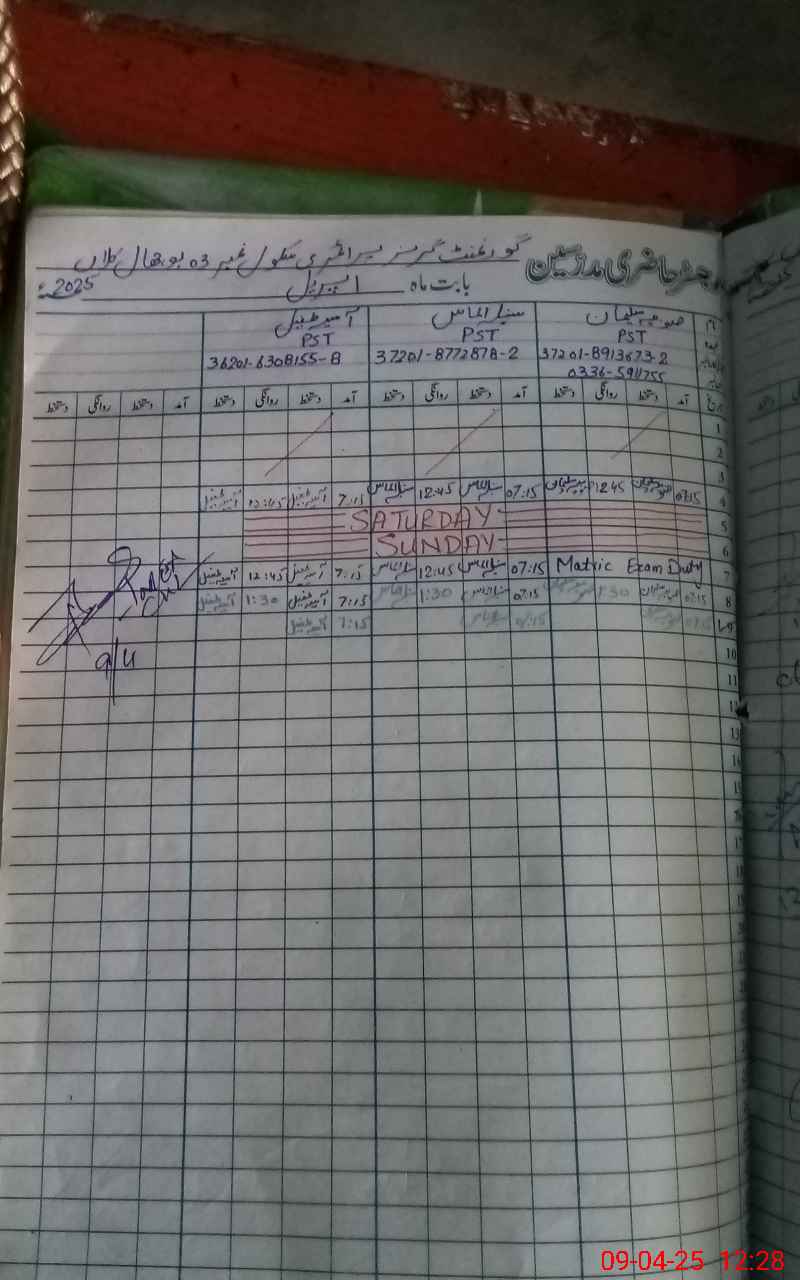 رجسٹر حاضری مدرسین گورنمنٹ گرلز پرائمری سکول نمبر 03 بوچھال کلاں
بابت ماہ اپریل 2025ء
نام صوبیہ سلیمان سنبل الماس آسیہ طفیل
PST PST PST
37201-8913673-2 37201-8772878-2 36201-6308155-8
0336-
تاریخ آمد دستخط روانگی دستخط آمد دستخط روانگی دستخط آمد دستخط روانگی دستخط آمد دستخط روانگی دستخط
1
2
3
4 07:15 12:45 07:15 سنبل الماس 12:45 سنبل الماس 7:15 آسیہ طفیل 12:45 آسیہ طفیل
5 SATURDAY
6 SUNDAY
7 Matric Exam Duty 07:15 سنبل الماس 12:45 سنبل الماس 7:15 آسیہ طفیل 12:45 آسیہ طفیل
8 07:15 1:30 07:15 سنبل الماس 1:30 سنبل الماس 7:15 آسیہ طفیل 1:30 آسیہ طفیل
9 07:15 07:15 سنبل الماس 7:15 آسیہ طفیل
9/4
10
11
12
13
14
15
16
17
18
09-04-25 12:28